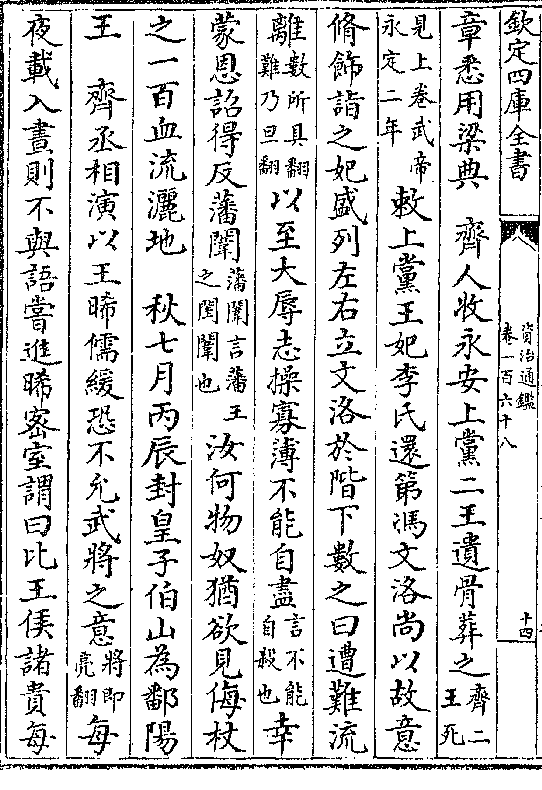 欽定四庫全書
資治通鑑
卷一百六十八
十四
章悉用梁典　齊人收永安上黨二王遺骨葬之齊二王死
見上卷武帝永定二年敕上黨王妃李氏還第馮文洛尚以故意
脩飾詣之妃盛列左右立文洛於階下數之曰遭難流
離數所具翻難乃旦翻以至大辱志操寡薄不能自盡言不能自殺也幸
蒙恩詔得反藩闈藩闈言藩王之閨闈也汝何物奴猶欲見侮杖
之一百血流灑地　秋七月丙辰封皇子伯山為鄱陽
王　齊丞相演以王晞儒緩恐不允武將之意將即亮翻每
夜載入晝則不與語嘗進晞密室謂曰比王侯諸貴每